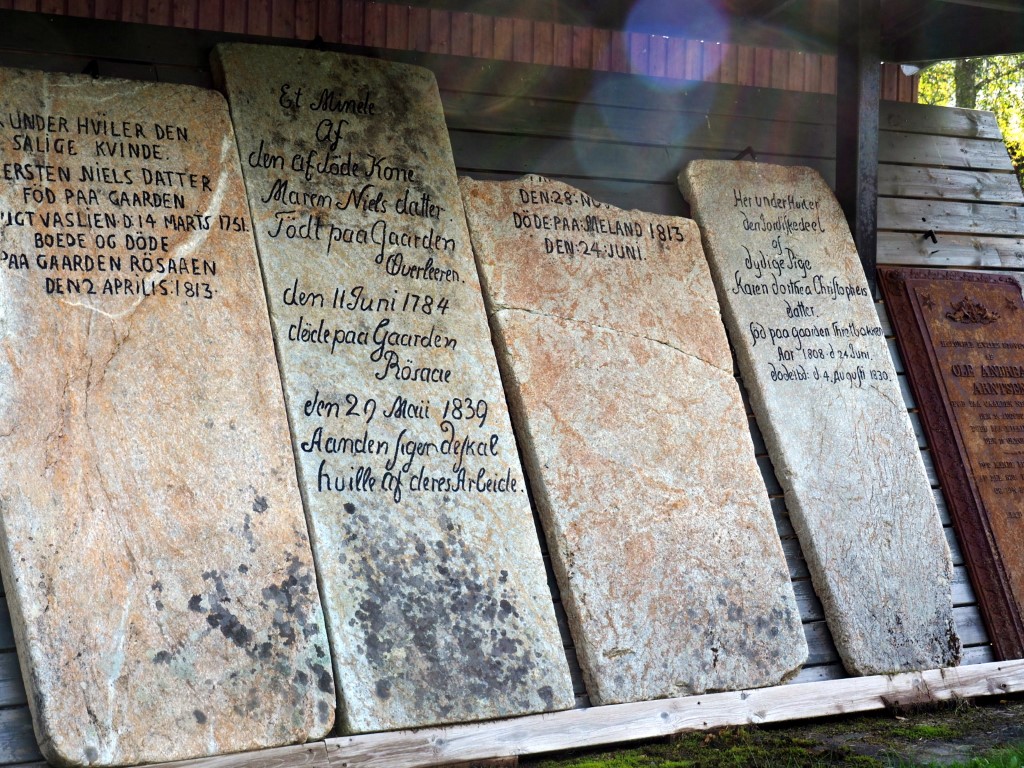 UNDER HVILER DEN
SALIGE KVINDE.
ERSTEN NIELS DATTER
FÖD PAA GAARDEN
VASLIEN D. 14 MARTS 1751.
BOEDE OG DÖDE
PAA GAARDEN RÖSAAEN
DEN 2 APRILIS 1813.
Et Minde
Af
den afdöde Kone
Maren Niels datter.
Födt paa Gaarden
Överleeren.
den 11 Juni 1784
döde paa Gaarden
Rösaae
den 29 Maii 1839
Aanden siger de skal
huille af deres Arbeide.
DEN: 28: NO
DÖDE: PAA: MELAND 1813
DEN: 24: JUNI.
Her under Hviler
den Jordiske deel
af
dydige Pige
Karen dorthea Christophers
datter.
föd paa gaarden
Aar 1808 d. 24 Juni.
död d. 4. Augusti 1830.
OLE ANDREAS
ARNTSEN